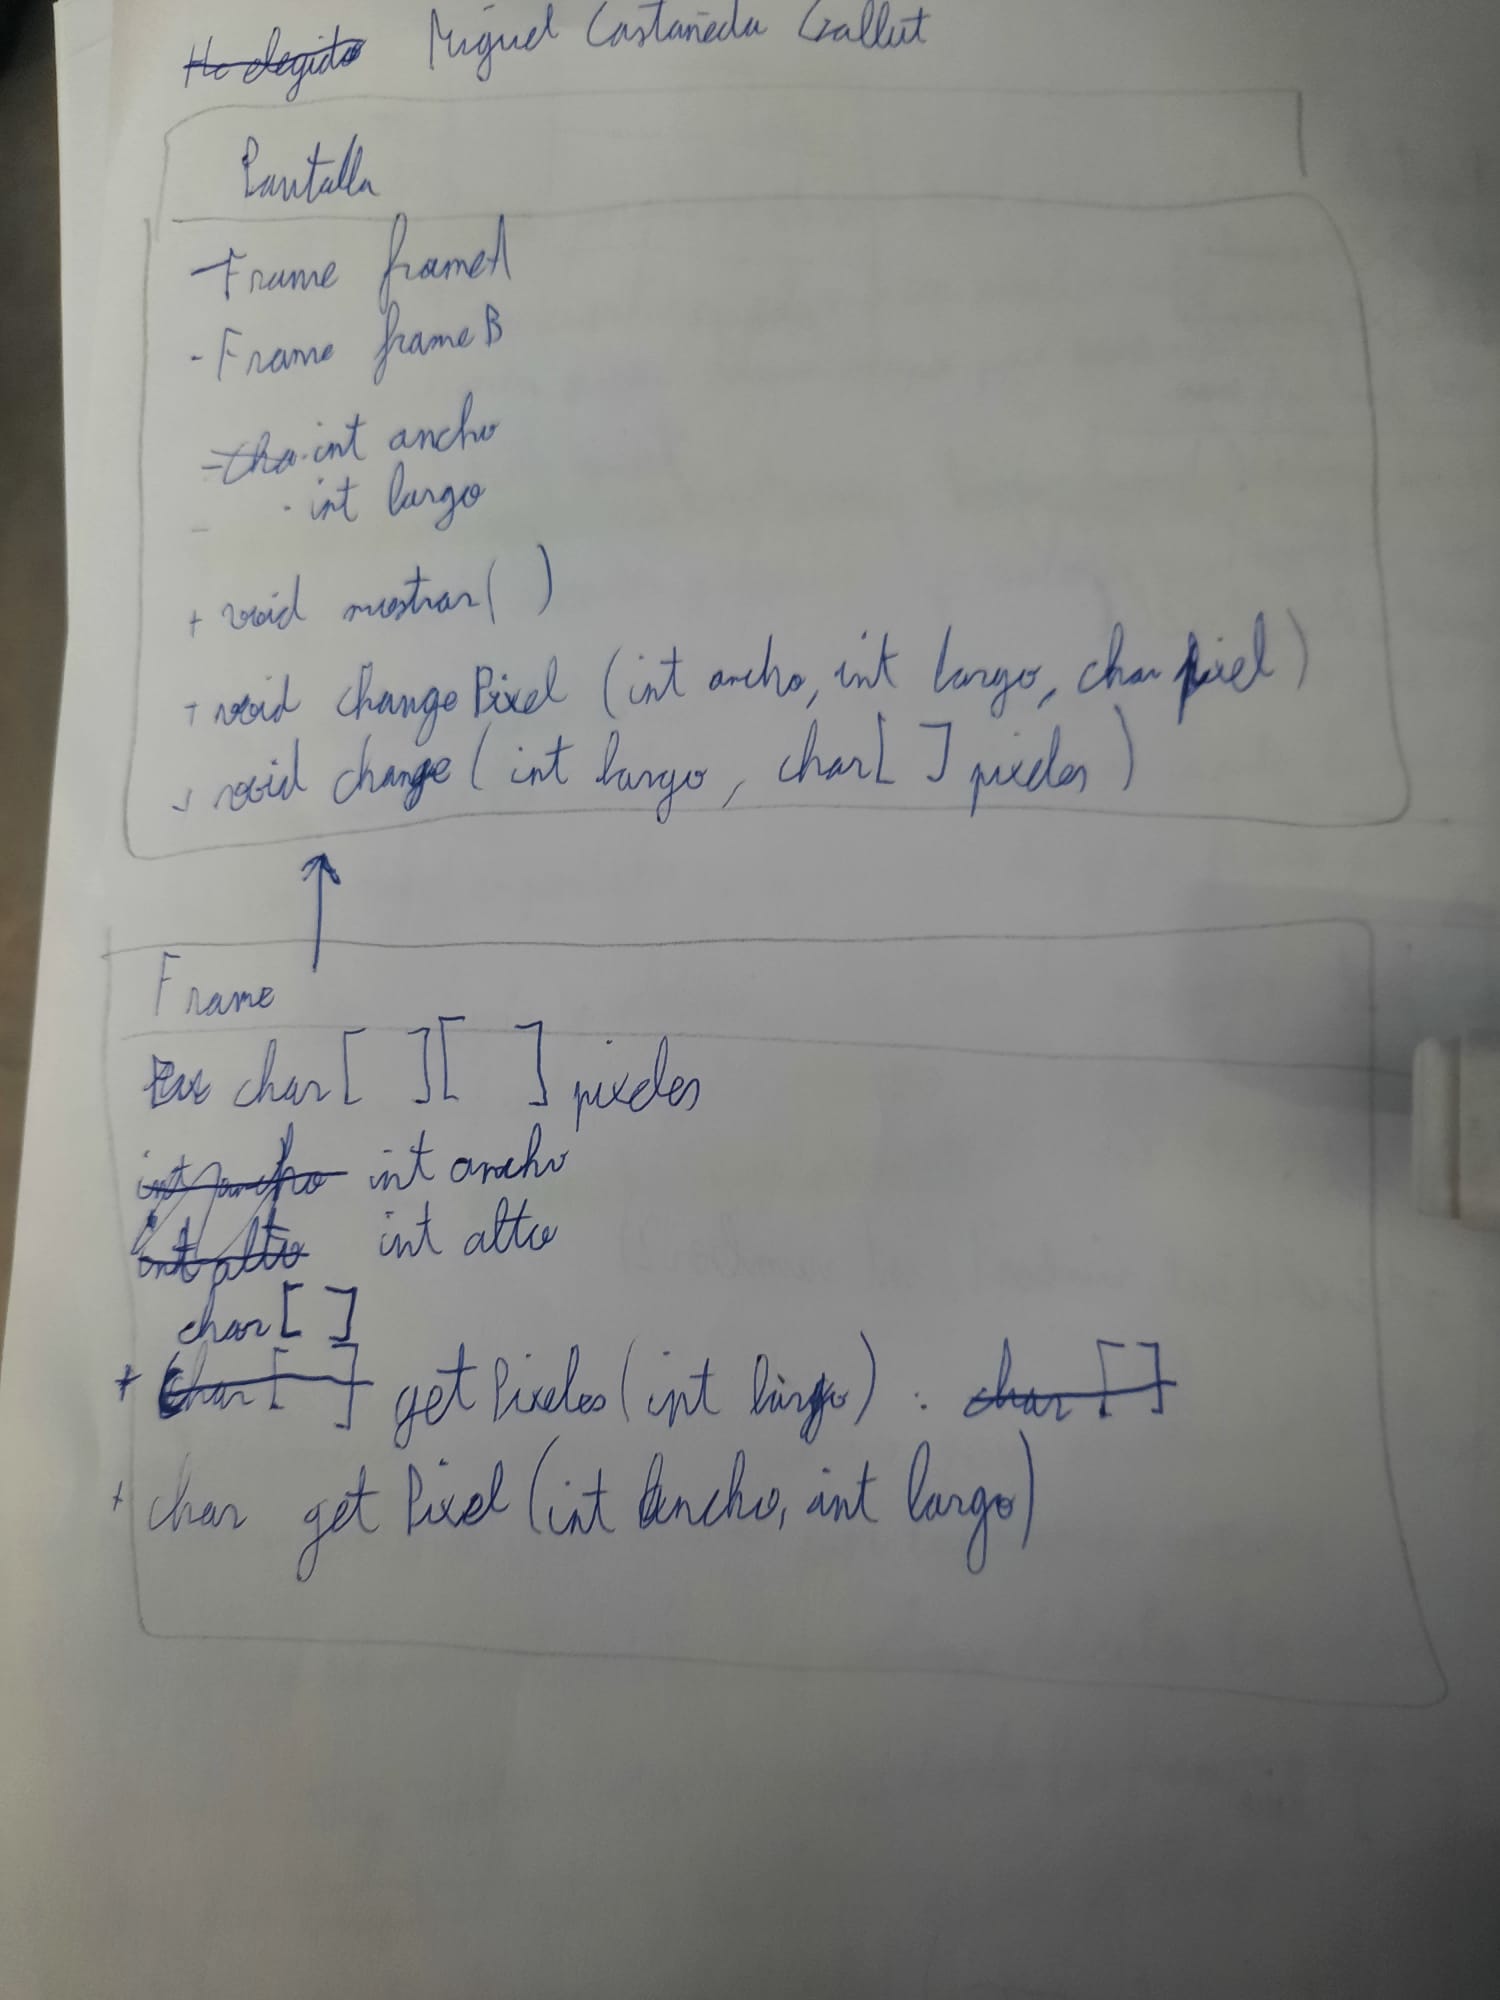 He elegido Miguel Castañeda Gallut
Pantalla
- Frame frameA
- Frame frameB
- cha int ancho
- int largo
+ void mostrar( )
+ void changePixel (int ancho, int largo, char pixel)
+ void change (int largo, char[ ] pixeles)
Frame
char[ ][ ] pixeles
int ancho int ancho
int alto int alto
char[ ]
+ char[ ] getPixeles(int largo) : char[]
+ char getPixel (int ancho, int largo)